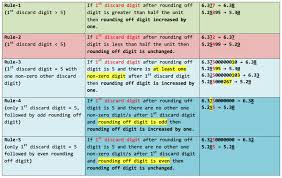 Rule-1
(1st discard digit > 5)
If 1st discard digit after rounding off
digit is greater than half the unit
then rounding off digit increased by
one.
Rule-2
(1st discard digit < 5)
If 1st discard digit after rounding off
digit is less than half the unit then
rounding off digit is unchanged.
Rule-3
(1st discard digit = 5 with
one non-zero other discard
digit)
If 1st discard digit after rounding off
digit is 5 and there is at least one
non-zero digit after 1st discard digit
then rounding off digit increased by
one.
Rule-4
(only 1st discard digit = 5,
followed by odd rounding off
digit)
If 1st discard digit after rounding off
digit is 5 and there are no other one
non-zero digit/s after 1st discard digit
and rounding off digit is odd then
rounding off digit is increased by one.
Rule-5
(only 1st discard digit = 5
followed by even rounding
off digit)
If 1st discard digit after rounding off
digit is 5 and there are no other one
non-zero digit/s after 1st discard digit
and rounding off digit is even then
rounding off digit is unchanged.